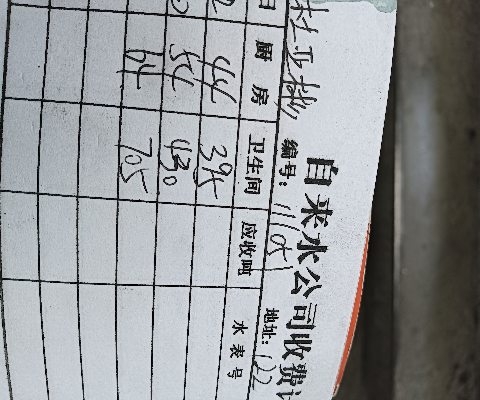 自来水公司收费
编号: 11105 地址: 122
日 厨房 卫生间 应收吨 水表号
2 44 395
54 430
64 705